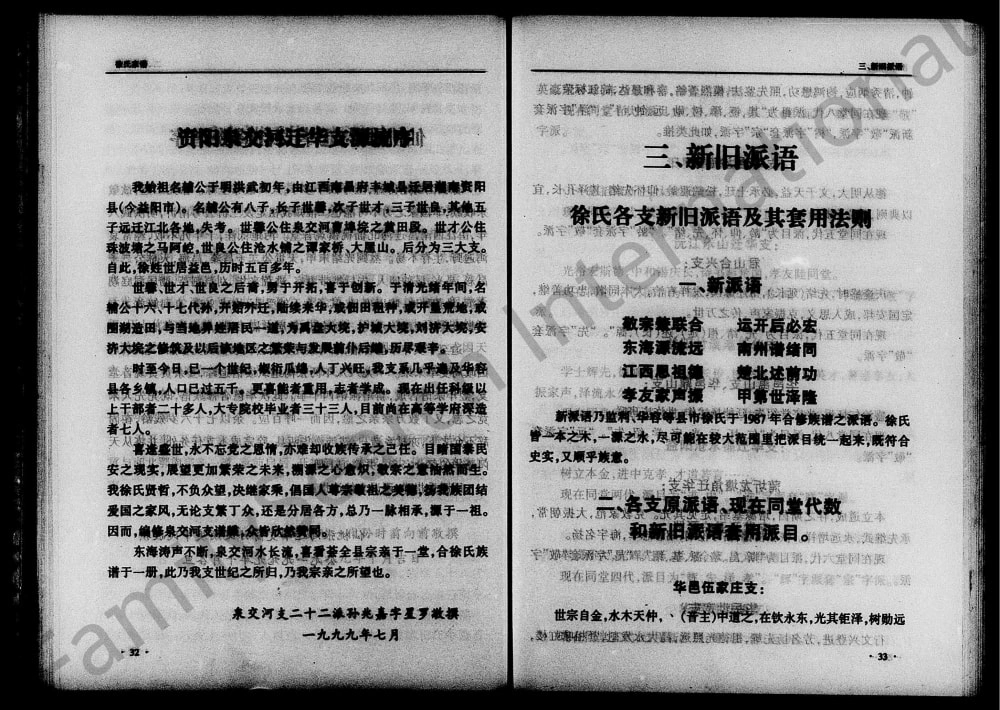 徐氏宗谱
资阳泉交河迁华支源流序
我始祖名辅公于明洪武初年,由江西南昌府丰城县迁居湖南资阳
县(今益阳市)。名辅公有八子,长子世馨,次子世才,三子世良,其他五
子远迁江北各地,失考。世馨公住泉交河曹埠垸之黄田段。世才公住
珠波塘之马阿蛇,世良公住沧水铺之谭家桥、大屋山。后分为三大支。
自此,徐姓世居益邑,历时五百多年。
世馨、世才、世良之后裔,勇于开拓,喜于创新。于清光绪年间,名
辅公十六、十七代孙,开始外迁,陆续来华,或佃田租种,或开垦荒地,或
围湖造田,与当地异姓居民一道,为禹盘大垸,护城大垸,刘济大垸,安
济大垸之修筑及以后该地区之繁荣与发展前仆后继,历尽艰辛。
时至今日,已一个世纪,椒衍瓜绵,人丁兴旺,我支系几乎遍及华容
县各乡镇,人口已过五千。更喜能者重用,志者学成。现在出任科级以
上干部者二十多人,大专院校毕业者三十三人,目前尚在高等学府深造
者七人。
喜逢盛世,永不忘党之恩情,亦难却收族传承之己任。目睹国泰民
安之现实,展望更加繁荣之未来,溯源之心意炽,敬宗之意怡然而生。
我徐氏贤哲,不负众望,决继家乘,倡国人尊宗敬祖之美德,扬我族团结
爱国之家风,无论支繁丁众,还是分居各方,总乃一脉相承,源于一祖。
因而,编修泉交河支道谱,众皆欣然赞同。
东海涛声不断,泉交河水长流,喜看荟全县宗亲于一堂,合徐氏族
谱于一册,此乃我支世纪之所归,乃我宗亲之所望也。
泉交河支二十二派孙兆嘉字星罗敬撰
一九九九年七月
· 32 ·
三、新旧派语
三、新旧派语
徐氏各支新旧派语及其套用法则
一、新派语
敦宗楚联合 运开后必宏
东海源流远 南州谱绪同
江西恩祖德 楚北述前功
孝友家声振 甲第世泽隆
新派语乃监利、华容等县市徐氏于1987年合修族谱之派语。徐氏
皆一本之木,一源之水,尽可能在较大范围里把派目统一起来,既符合
史实,又顺乎族意。
二、各支原派语、现在同堂代数
和新旧派语套用派目。
华邑伍家庄支:
世宗自金,水木天仲,﹑(晋主)中道之,在钦永东,光其钜泽,树勋远
· 33 ·